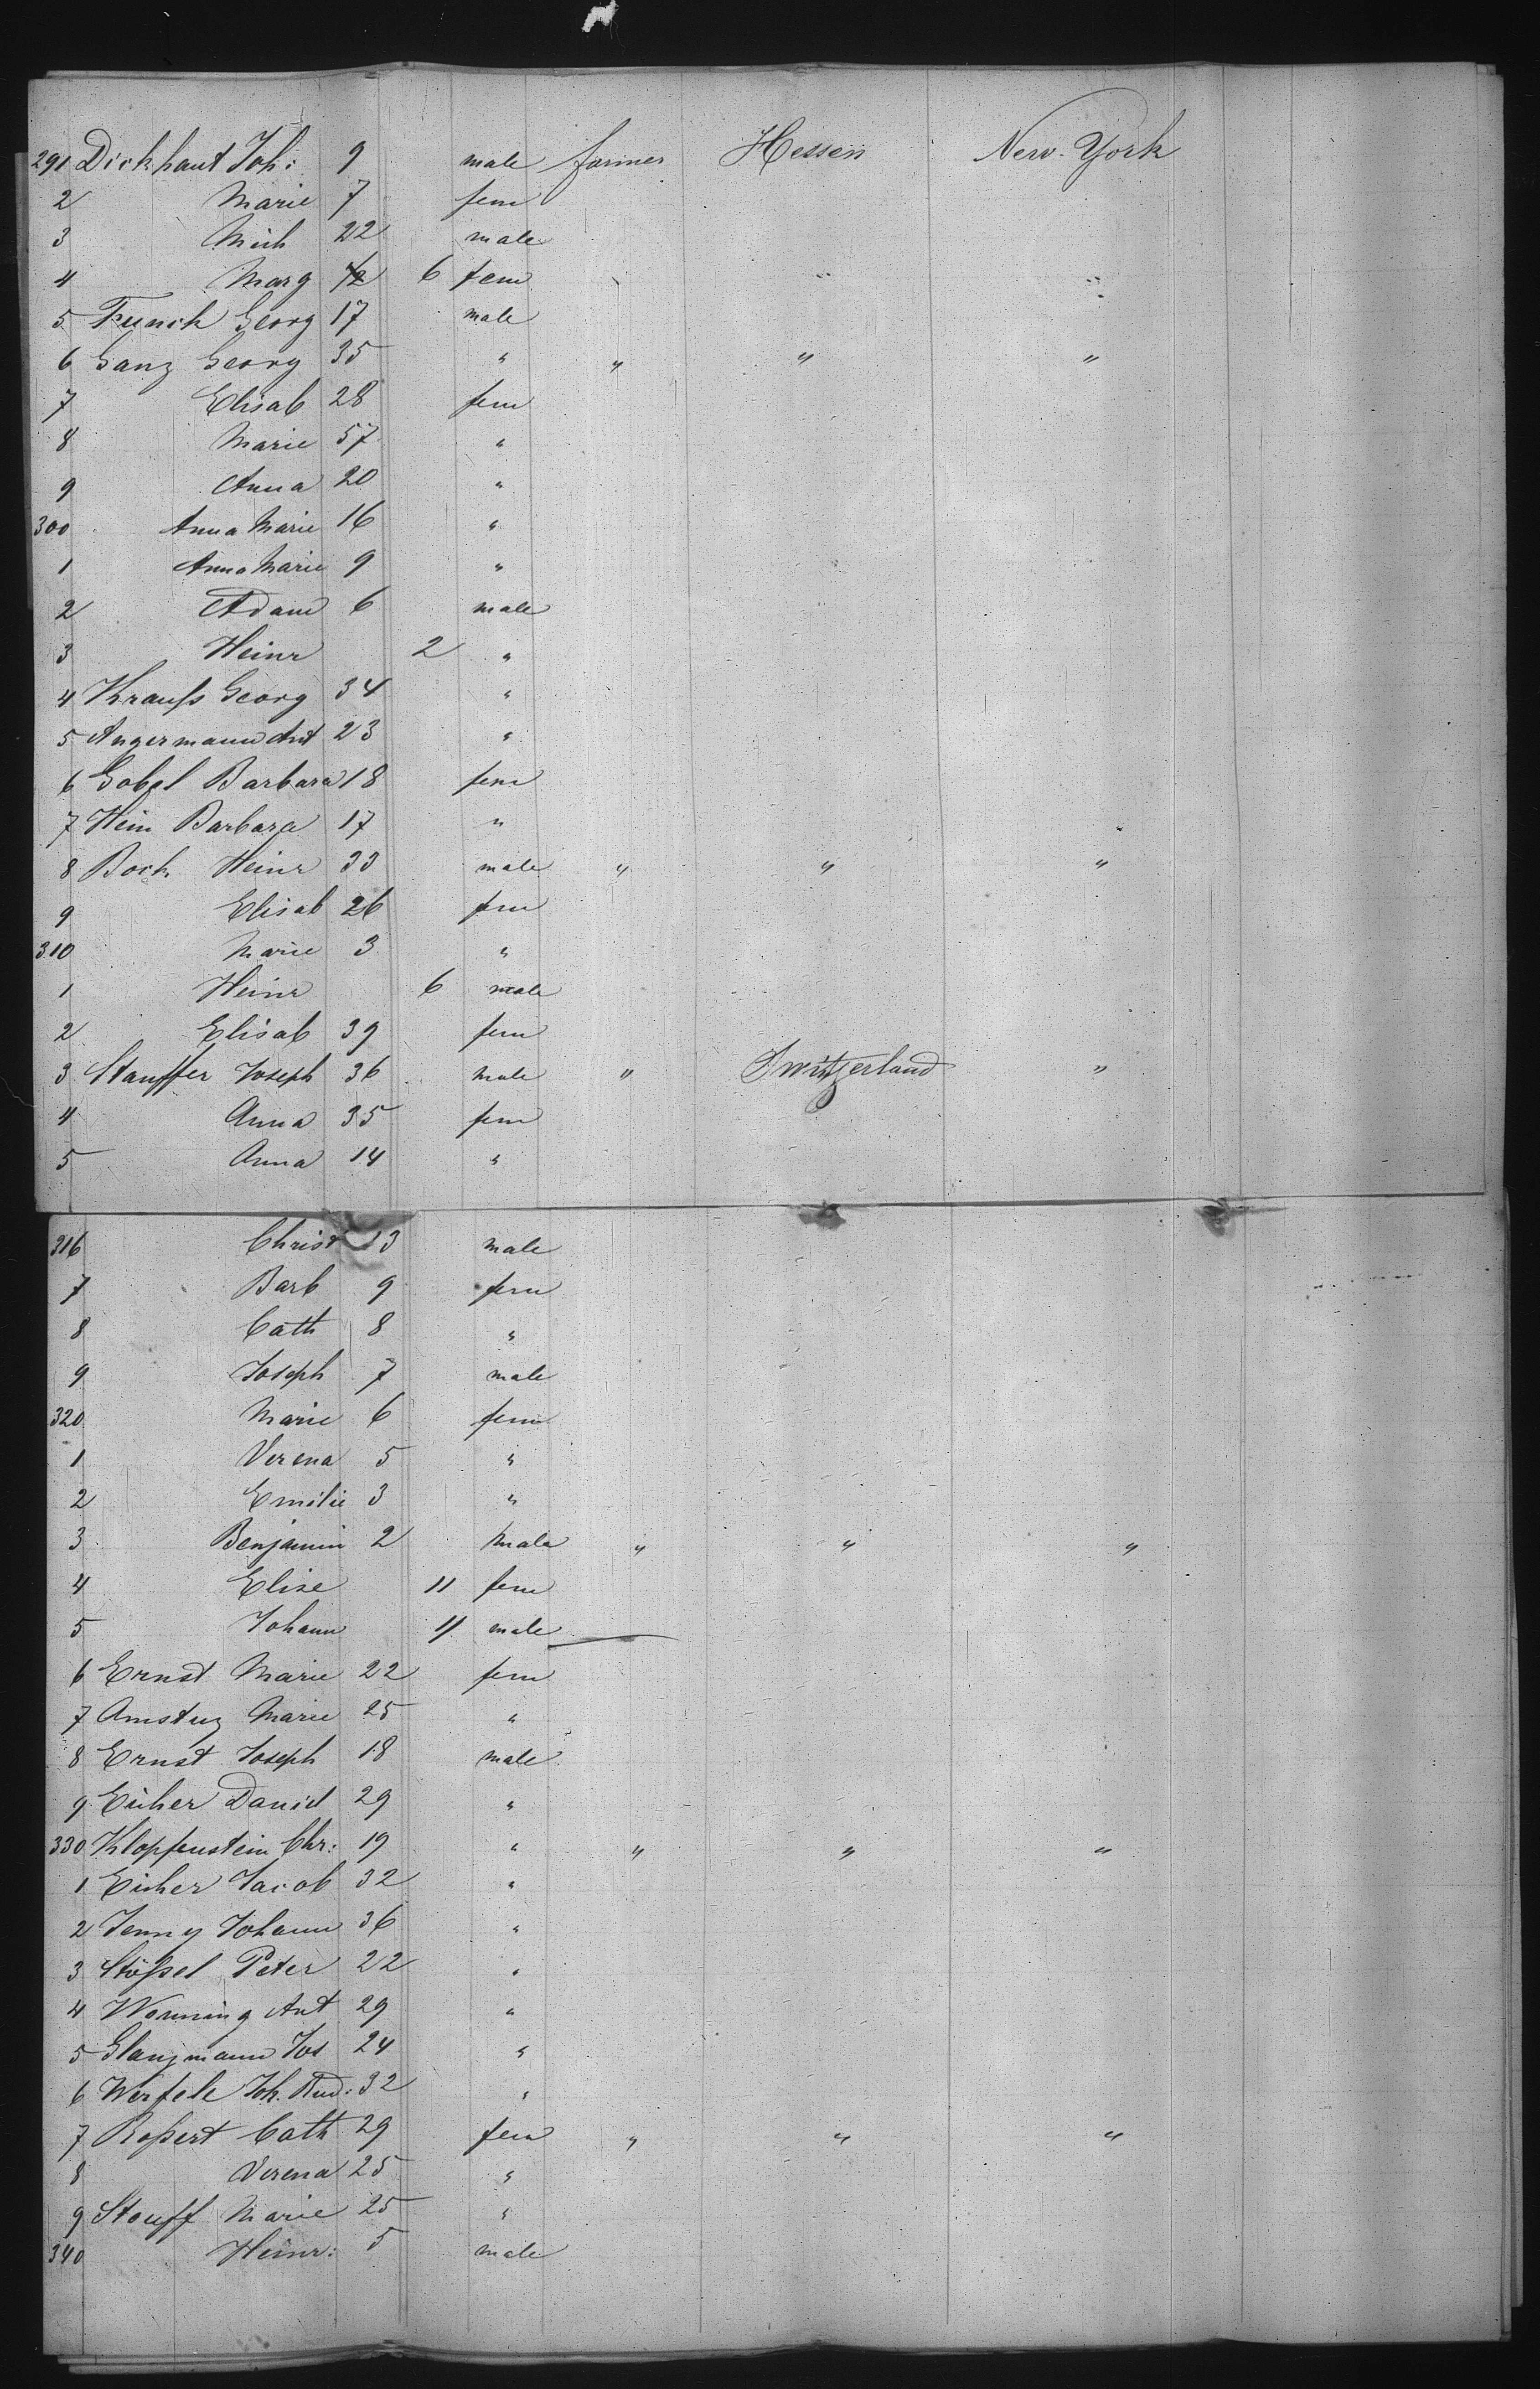 291 Dickhaut Joh: 9 male farmer Hessen New-York
2 Marie 7 fem
3 Mich 22 male
4 Marg 6 fem " " "
5 Funck Georg 17 male
6 Ganz Georg 35 " " " "
7 Elisab 28 fem
8 Marie 57 "
9 Anna 20 "
300 Anna Marie 16 "
1 Anna Marie 9 "
2 Adam 6 male
3 Heinr 2 "
4 Krauss Georg 34 "
5 Angermann Ant 23 "
6 Gobel Barbara 18 fem
7 Hein Barbara 17 "
8 Bock Heinr 33 male " " "
9 Elisab 26 fem
310 Marie 3 "
1 Heinr 6 male
2 Elisab 39 fem
3 Stauffer Joseph 36 male " Switzerland "
4 Anna 35 fem
5 Anna 14 "
316 Christ 13 male
7 Barb 9 fem
8 Cath 8 "
9 Joseph 7 male
320 Marie 6 fem
1 Verena 5 "
2 Emilie 3 "
3 Benjamin 2 male " " "
4 Elise 11 fem
5 Johann 11 male
6 Ernst Marie 22 fem
7 Amstuz Marie 25 "
8 Ernst Joseph 18 male
9 Eicher David 29 "
330 Klopfenstein Chr: 19 " " " "
1 Eicher Jacob 32 "
2 Jenny Johann 36 "
3 Stössel Peter 22 "
4 Wonning Ant 29 "
5 Glanzmann Jos 24 "
6 Werfele Joh. Rud: 32 "
7 Rossert Cath 29 fem " " "
8 Verena 25 "
9 Stouff Marie 25 "
340 Heinr: 5 male